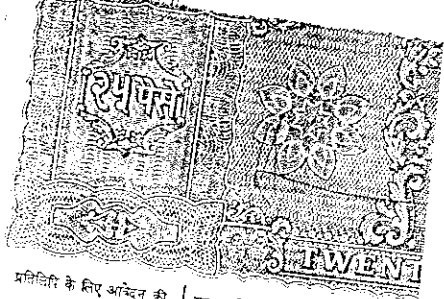 २५ पैसे
TWENT
प्रतिलिपि के लिए आवेदन की